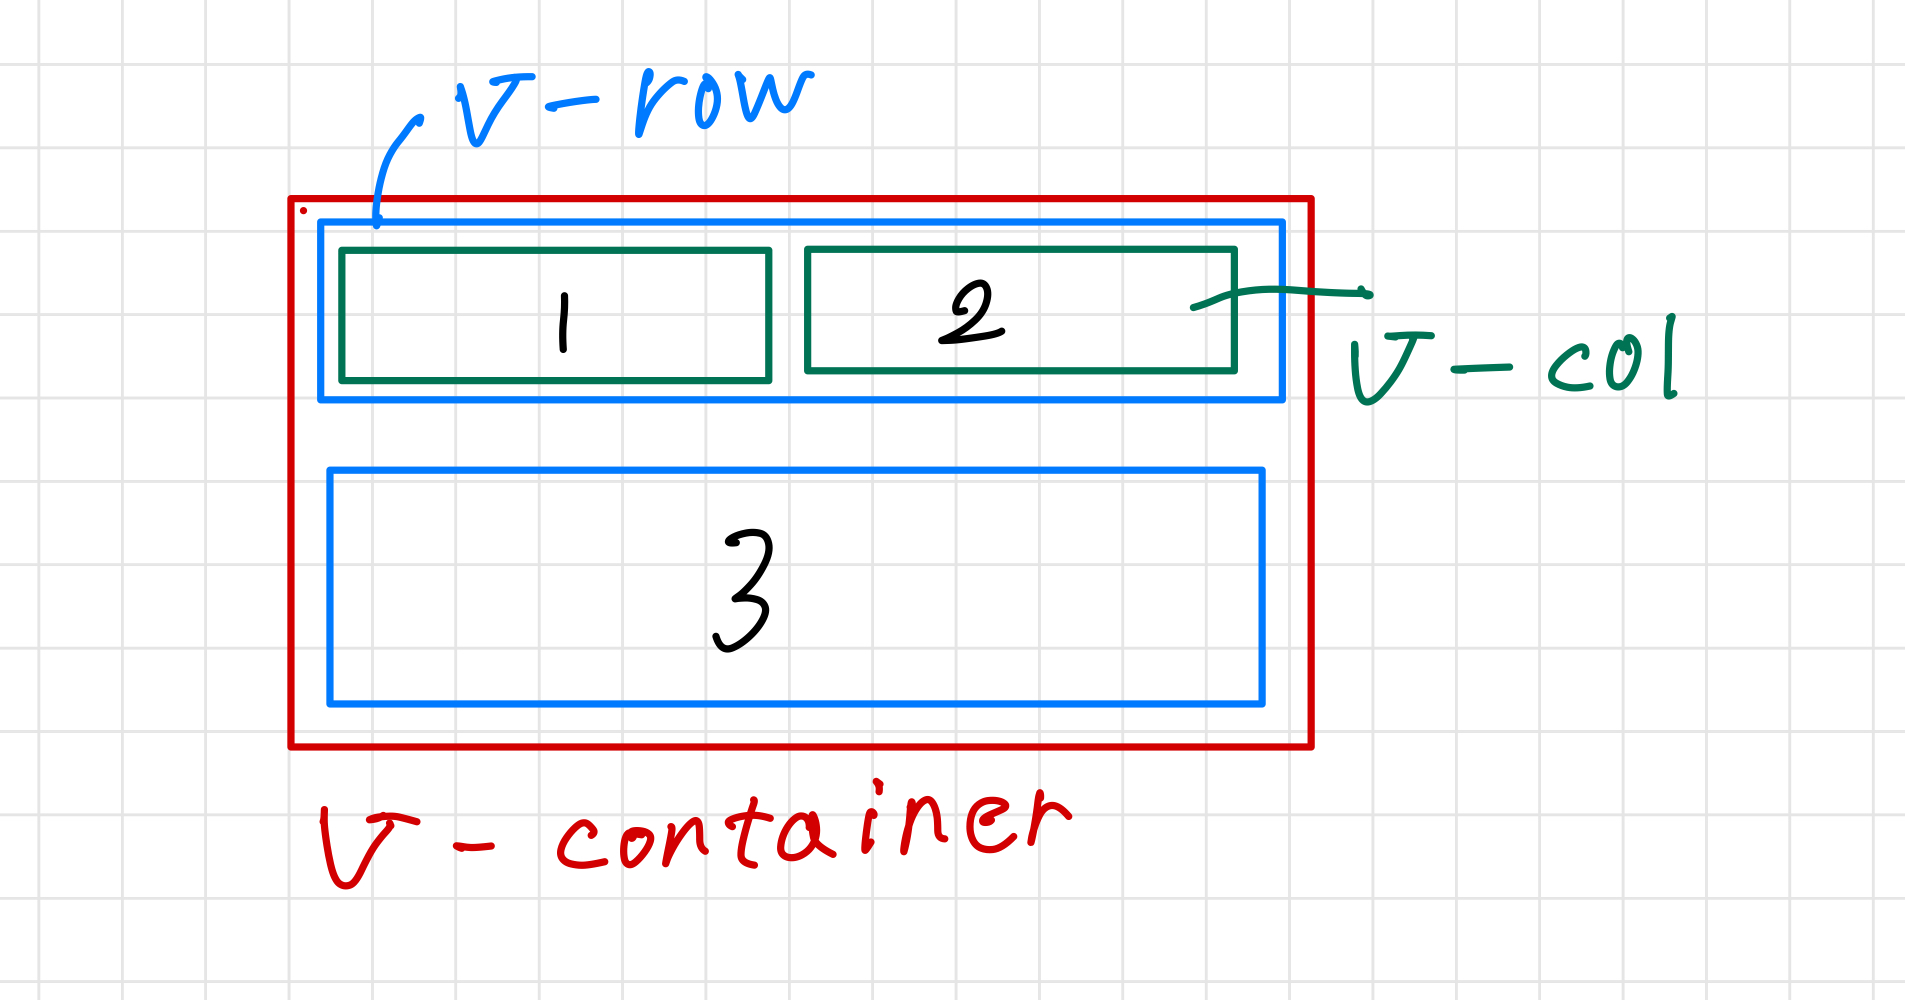 v-row
1
2
v-col
3
v-container